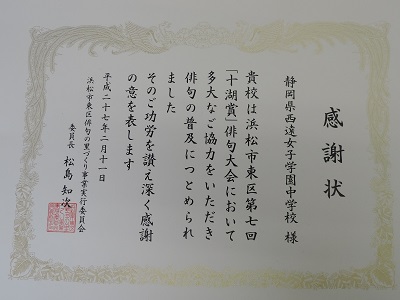 感謝状
静岡県西遠女子学園中学校 様
貴校は浜松市東区第七回
「十湖賞」俳句大会において
多大なご協力をいただき
俳句の普及につとめられ
ました
そのご功労を讃え深く感謝
の意を表します
平成二十七年二月十一日
浜松市東区俳句の里づくり事業実行委員会
委員長 松島知次